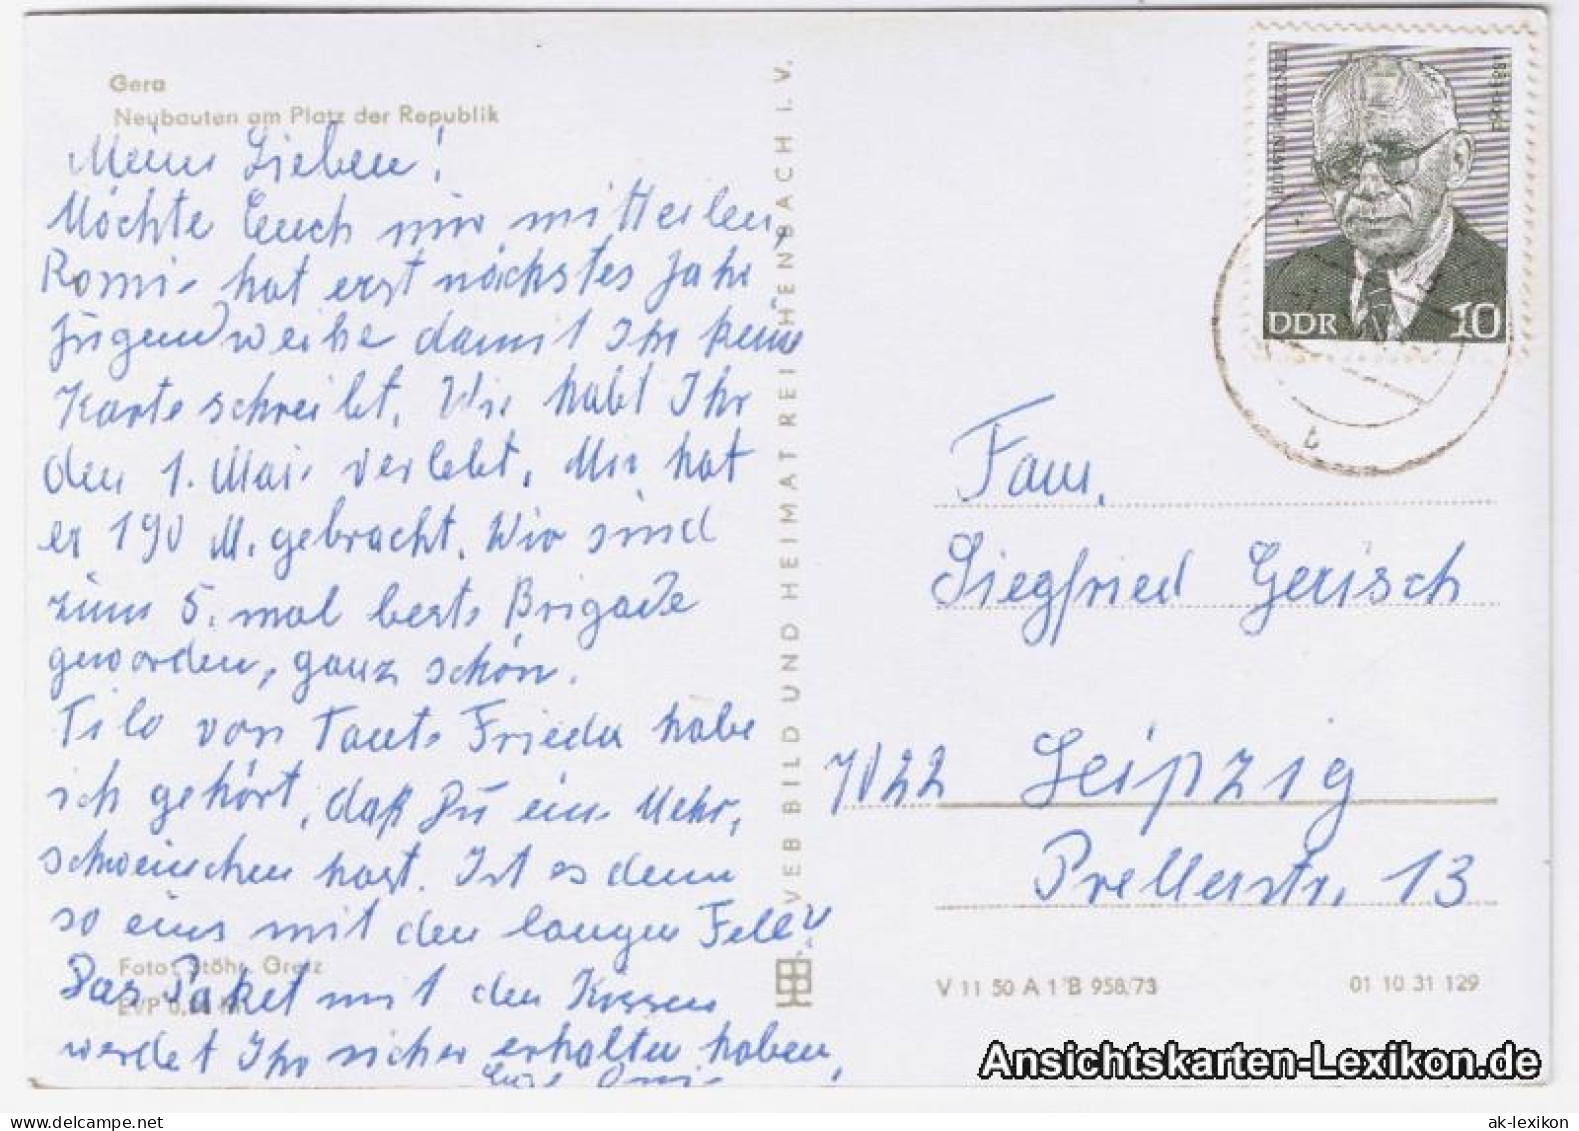 Gera
Neubauten am Platz der Republik
Meine Lieben!
Möchte Euch nur mitteilen,
Romi hat erst nächstes Jahr
Jugendweihe damit Ihr keine
Karte schreibt. Wie habt Ihr
den 1. Mai verlebt. Mir hat
er 190 M. gebracht. Wir sind
zum 5. mal beste Brigade
geworden, ganz schön.
Tilo von Tante Frieda habe
ich gehört, daß Du ein Meer,
schweinchen hast. Ist es denn
so eins mit den langen Fell?
Das Paket mit den Kissen
werdet Ihr sicher erhalten haben,
Eure Omi
Foto: Stöhr, Greiz
EVP
VEB BILD UND HEIMAT REICHENBACH I. V.
EDWIN HOERNLE
1883-1952
DDR 10
Fam.
Siegfried Gerisch
7022 Leipzig
Prellerstr. 13
V 11 50 A 1 B 958/73
01 10 31 129
Ansichtskarten-Lexikon.de
delcampe.net
ak-lexikon